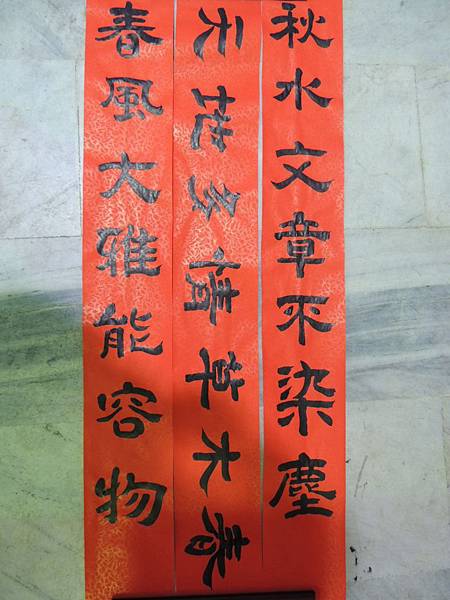 秋水文章不染塵
天多情草木春
春風大雅能容物